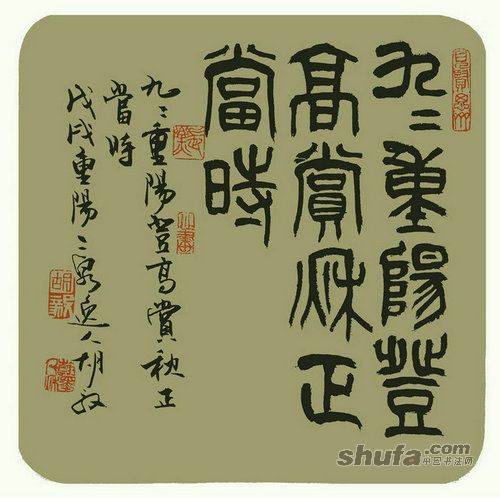 九〻重陽登
高賞秋正
當時
九〻重陽登高賞秋正
當時
戊戌重陽二泉逸人胡
shufa.com
中国书法网